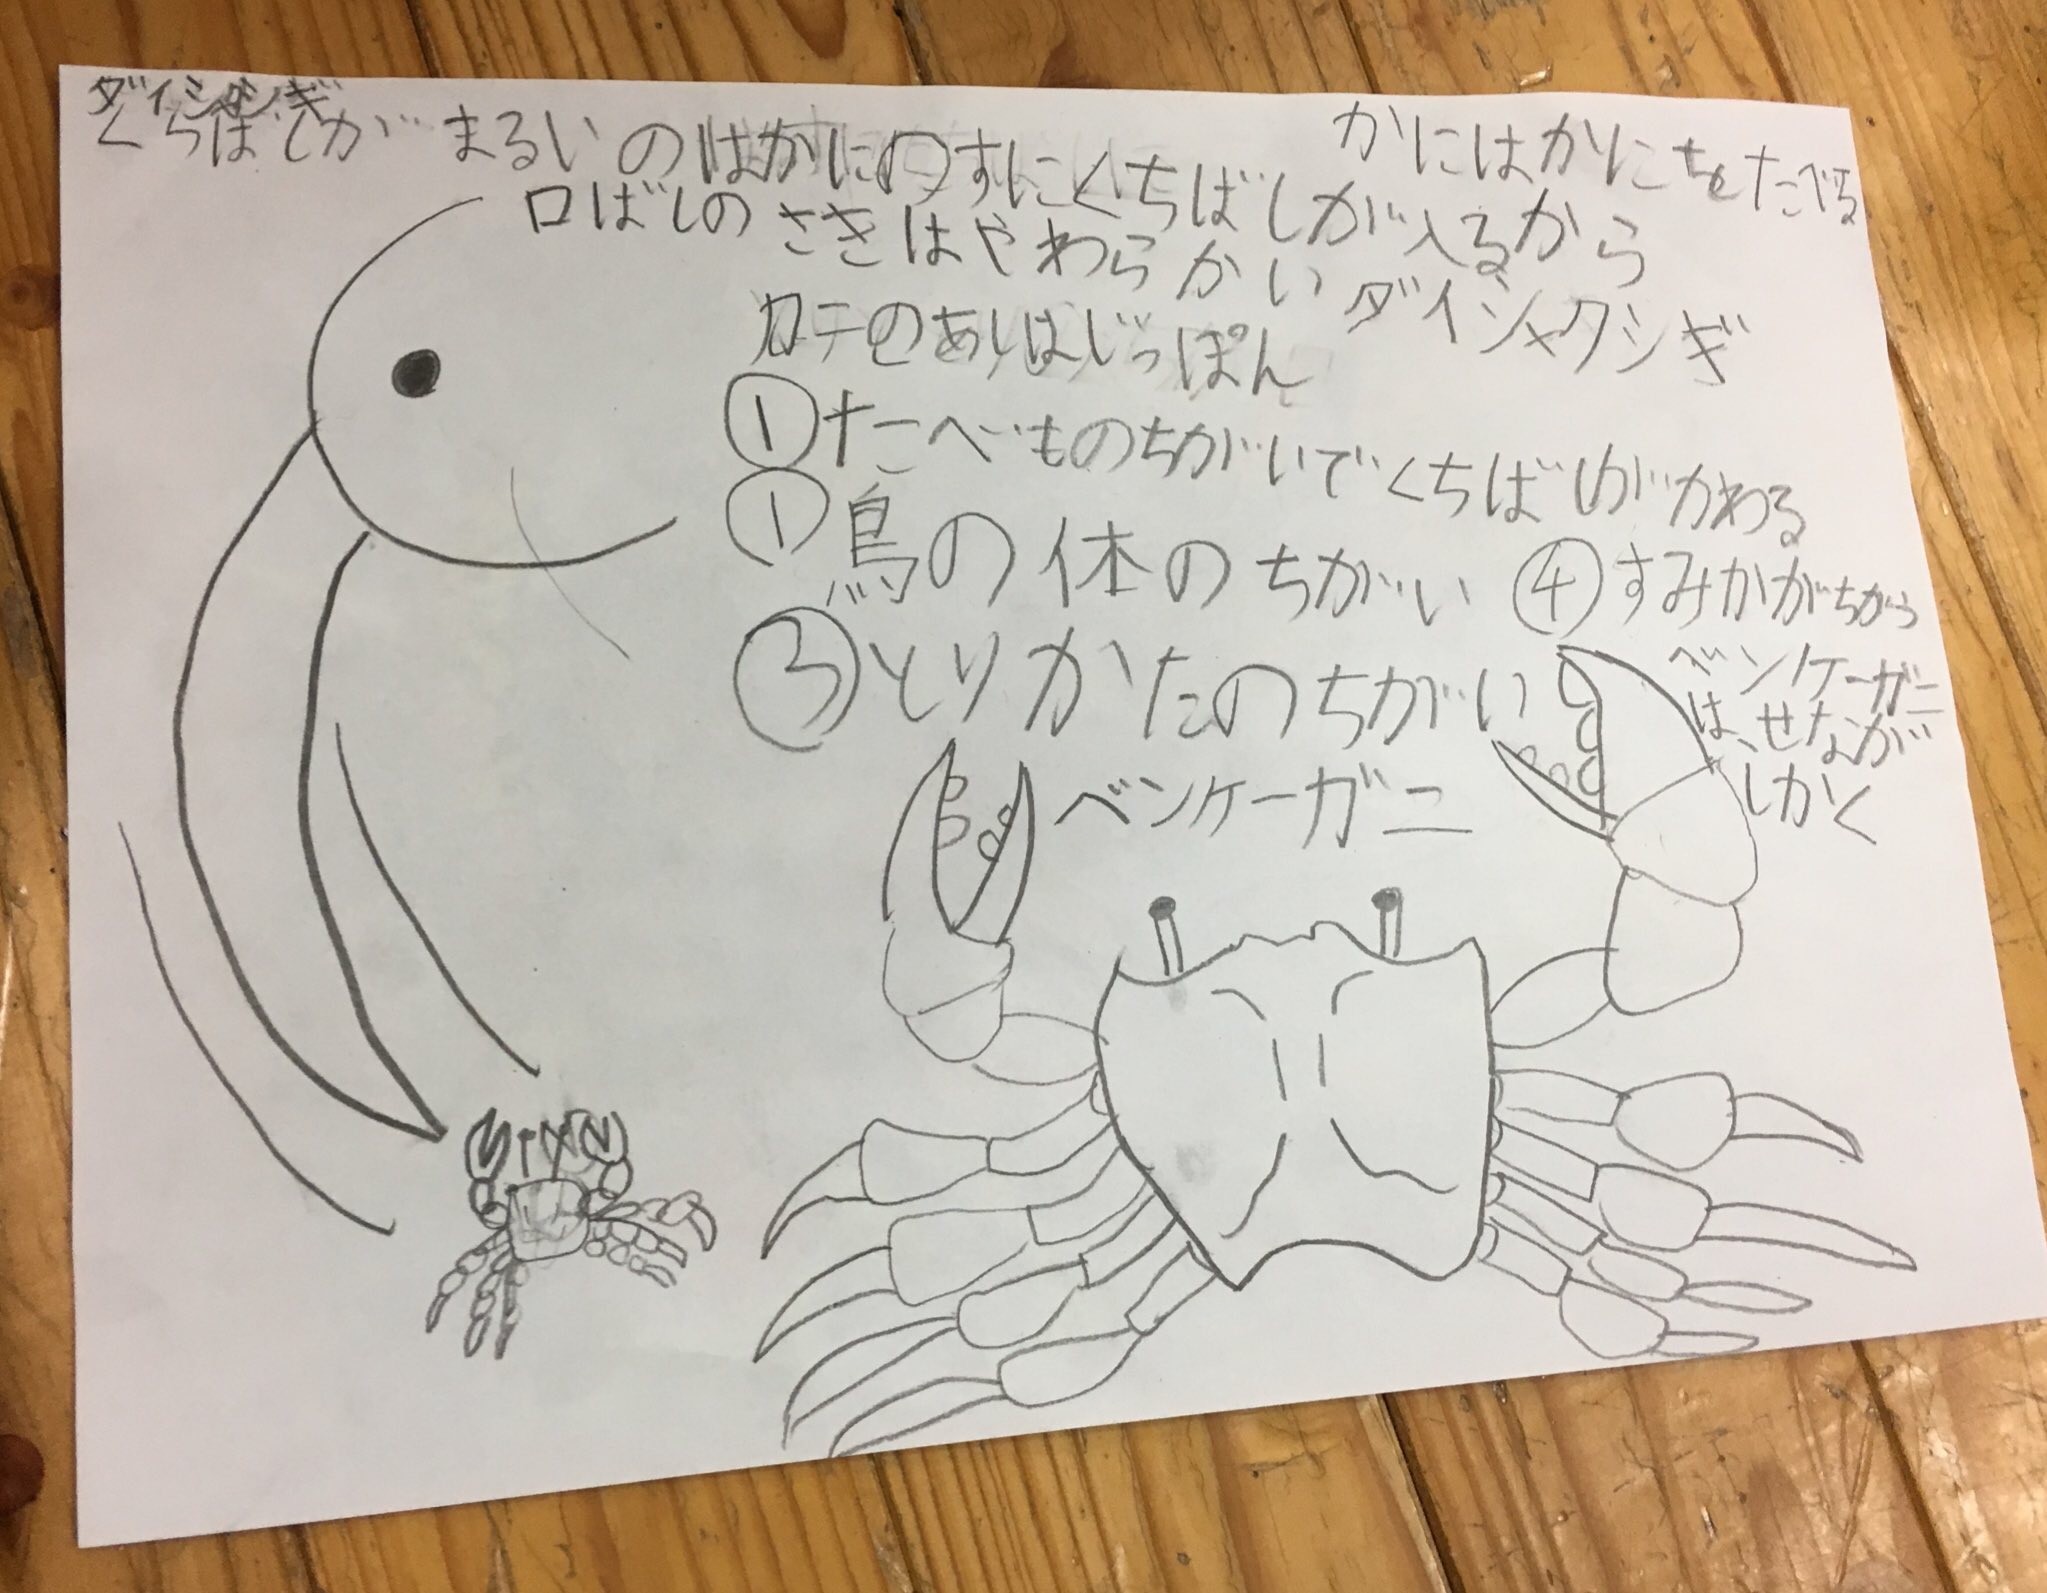 ダイシャクシギ
くちばしがまるいのはかにのすにくちばしが入るから
かにはかにこをたべる
口ばしのさきはやわらかいダイシャクシギ
カニのあしはじっぽん
①たべものちがいでくちばしがかわる
①鳥の体のちがい ④すみかがちがう
③とりかたのちがい
ベンケーガニ
は、せなが
しかく
ベンケーガニ